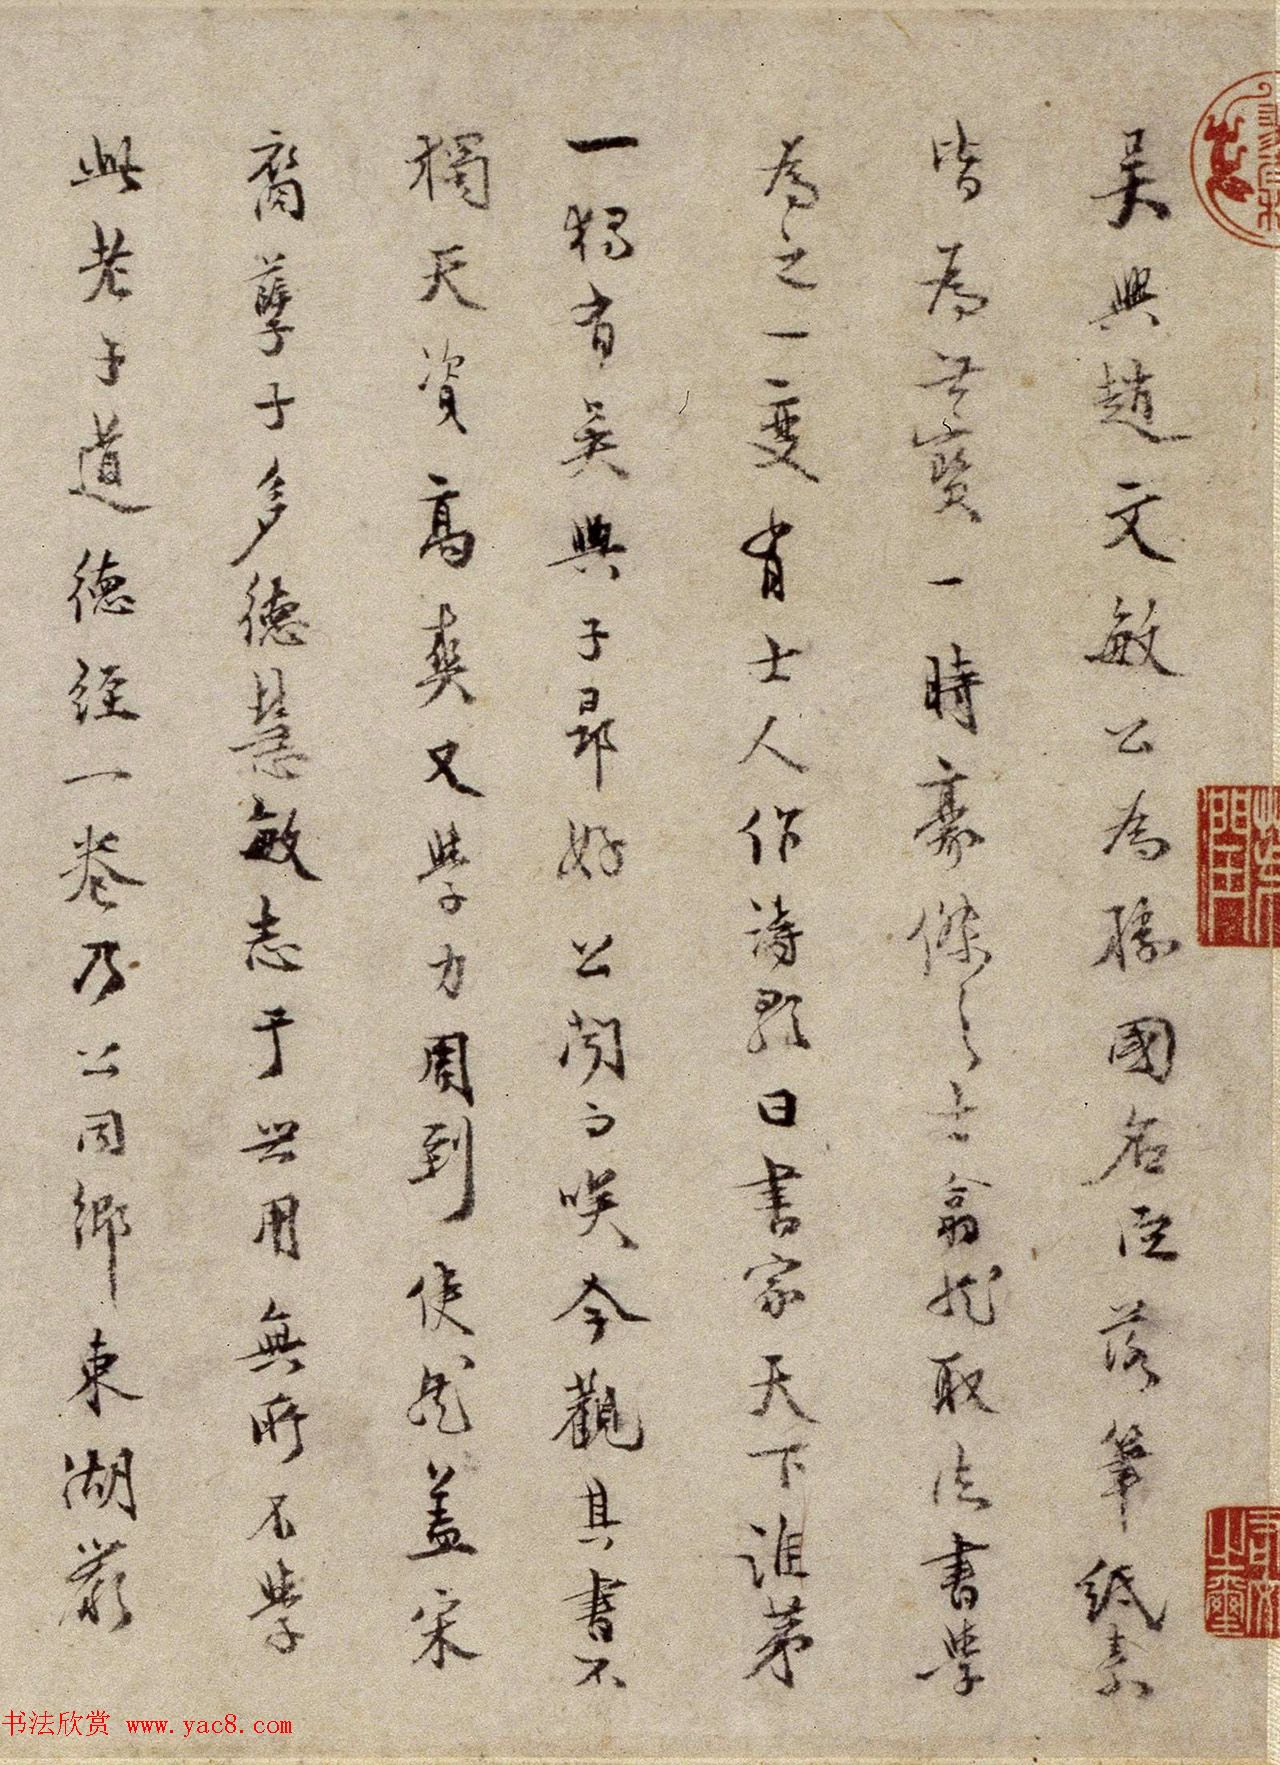 吳興趙文敏公為勝國名臣落筆紙素
皆為世寶一時豪傑之士翕然取法書學
為之一變有士人作詩題曰書家天下誰茅
一獨有吳興子昻好公聞而咲今觀其書不
獨天資高爽又學力周到使然蓋宋
裔孽子多德慧敏志于世用無所不學
此老子道德經一卷乃公同鄉東湖嚴
书法欣赏 www.yac8.com